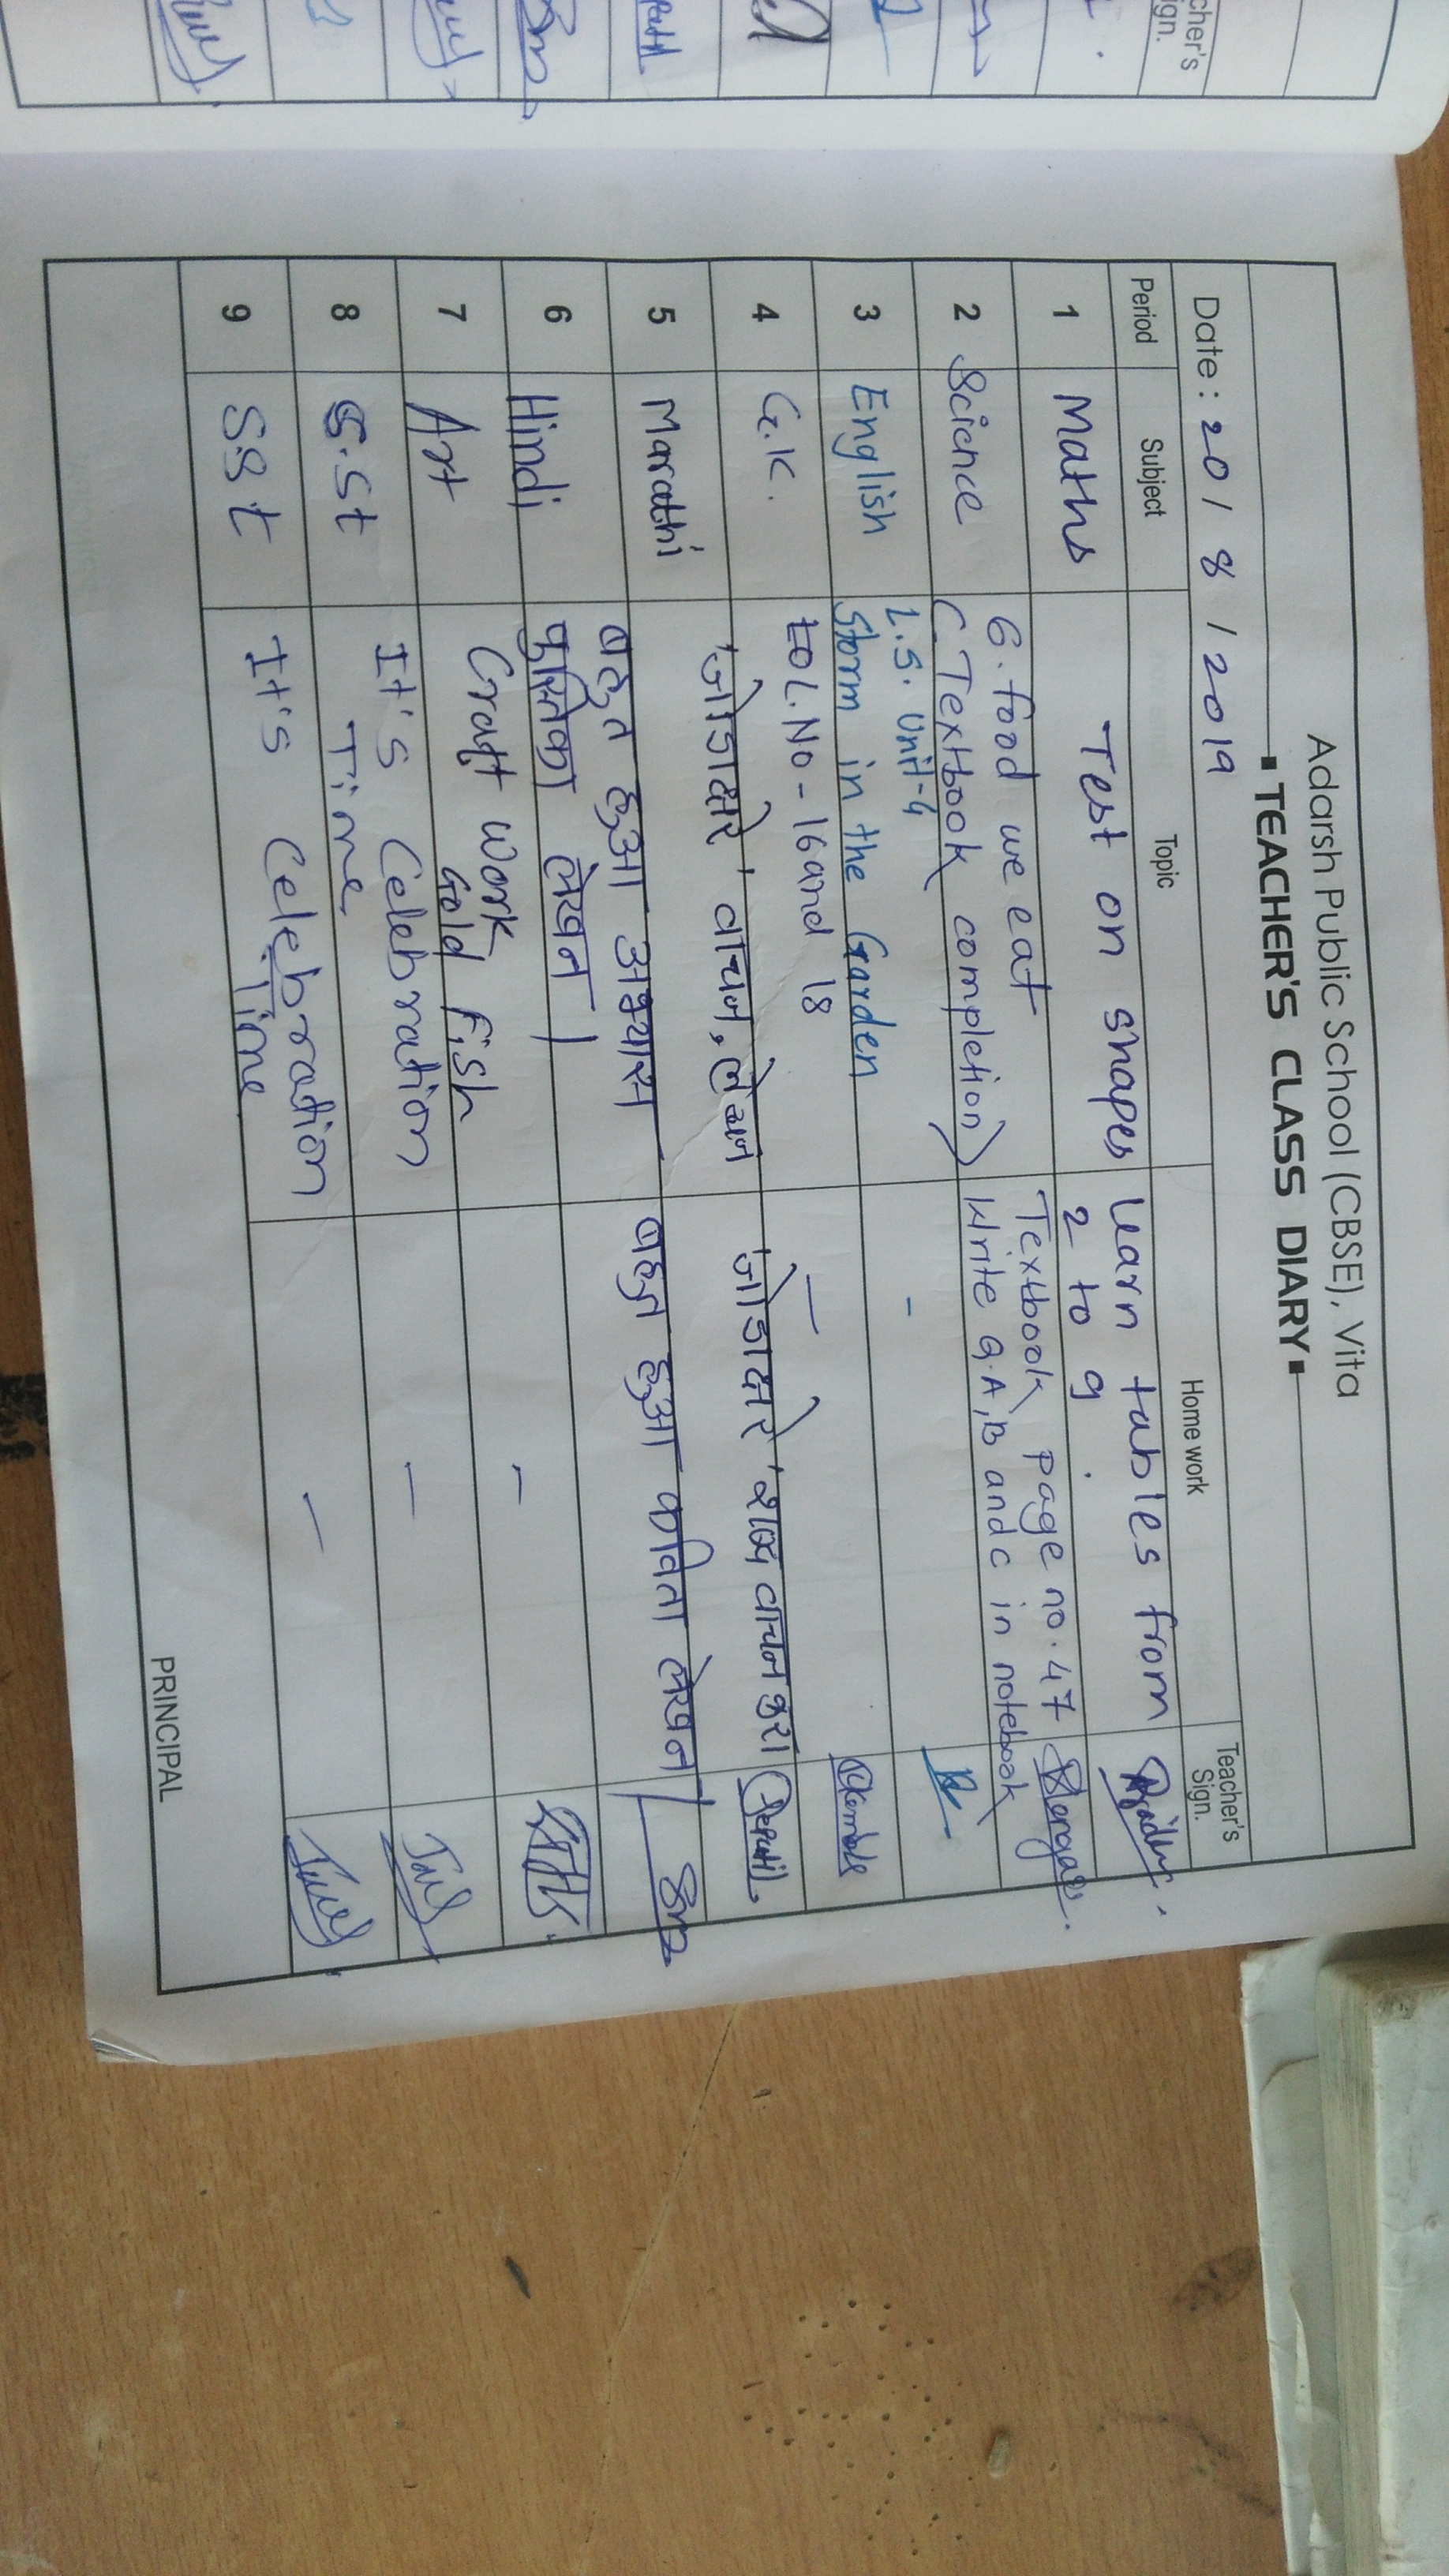 Adarsh Public School (CBSE), Vita
TEACHER'S CLASS DIARY
Date : 20 / 8 / 2019
Period Subject Topic Home work Teacher's Sign.
1 Maths Test on shapes Learn tables from
2 to 9.
2 Science 6. food we eat Textbook page no. 47
(Textbook completion) Write Q.A, B and C in notebook
3 English L.S. Unit-4 -
Storm in the Garden
4 G.K. to L.No - 16 and 18 — Kemble
5 Marathi 'जोडाक्षरे' वाचन, लेखन 'जोडाक्षरे' शब्द वाचन करा।
6 Hindi बहुत हुआ अभ्यास बहुत हुआ कविता लेखन।
पुस्तिका लेखन।
7 Art Craft work —
Gold Fish
8 S.St It's Celebration —
Time
9 S.St It's Celebration —
Time
PRINCIPAL
cher's
ign.